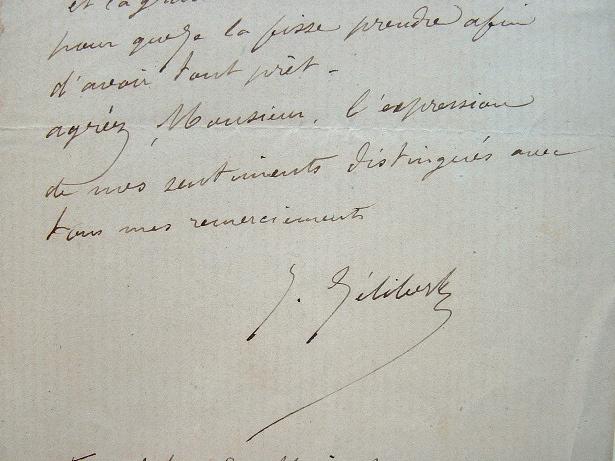 et la
pour que je la fisse prendre afin
d'avoir tout prêt -
agréez, Monsieur, l'expression
de mes sentiments distingués avec
tous mes remerciements
G. Gélibert